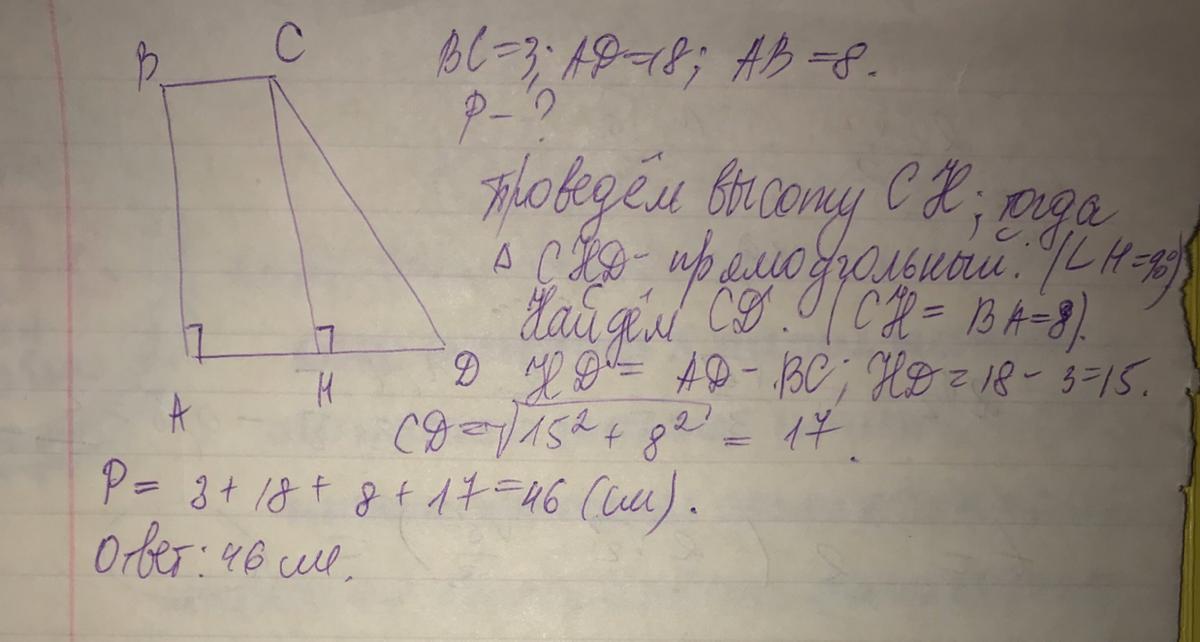 B
C
BC=3; AD=18; AB=8.
P-?
Проведём высоту CH; тогда
△ CHD- прямоугольный. (∠H=90°)
Найдём CD. (CH= BA=8).
HD= AD-BC; HD=18-3=15.
A
H
D
CD=√15²+8² = 17.
P= 3+18+8+17=46 (см).
Ответ: 46 см.